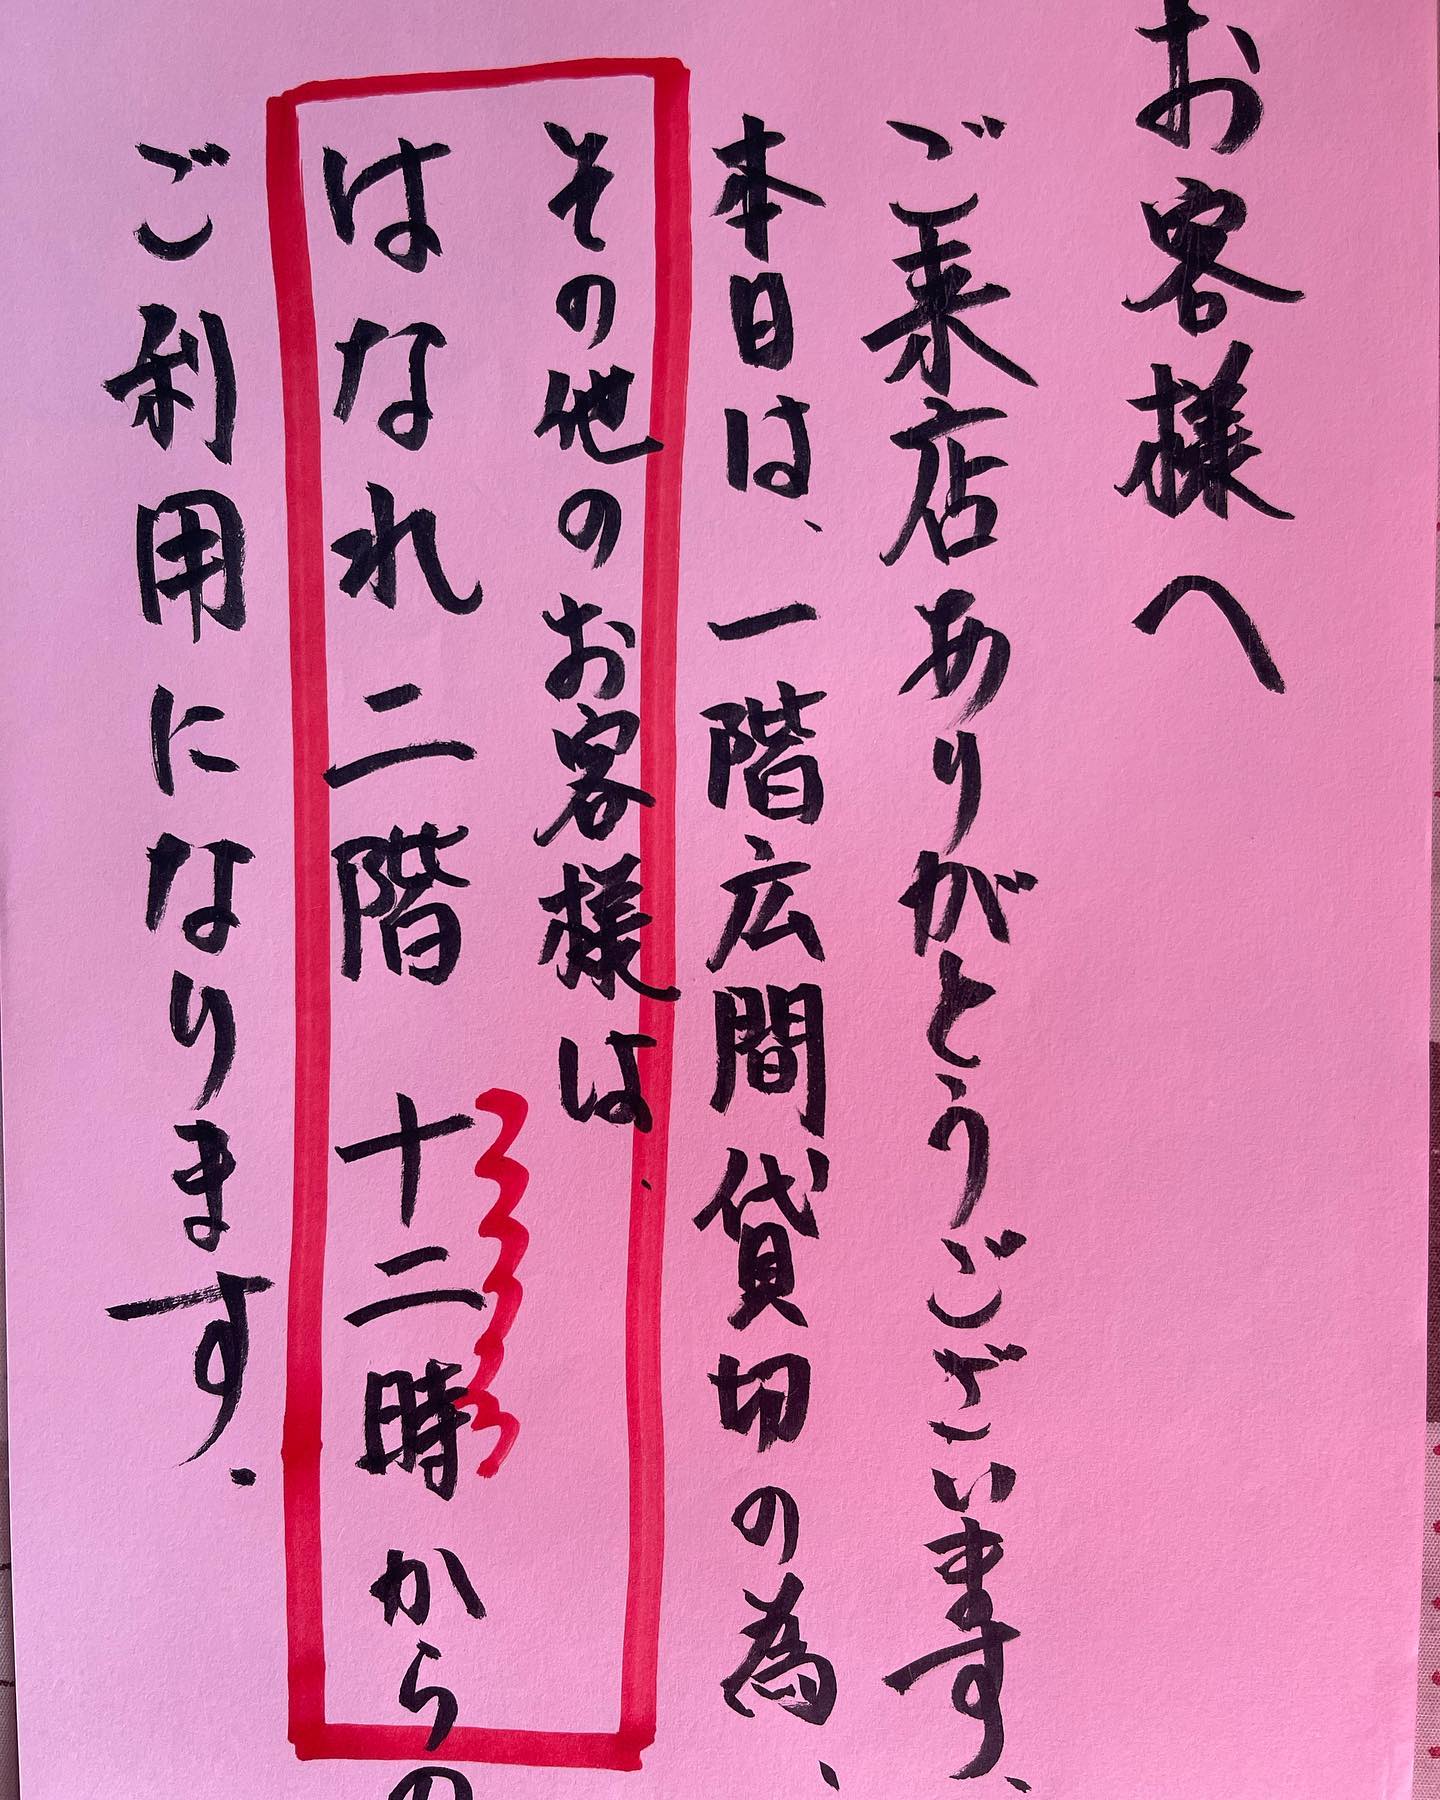 お客様へ
ご来店ありがとうございます、
本日は、一階広間貸切の為、
その他のお客様は、
はなれ二階 十二時からの
ご利用になります。